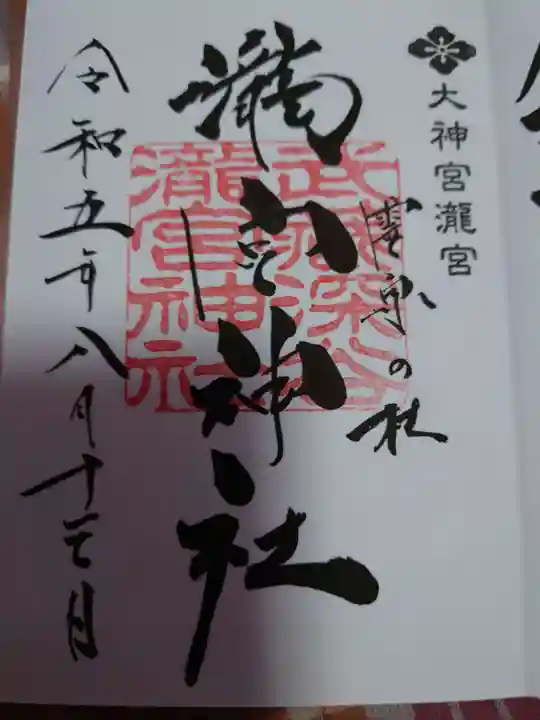 大神宮瀧宮
霊泉の杜
瀧宮神社
武蔵深谷
瀧宮神社
令和五年八月十日